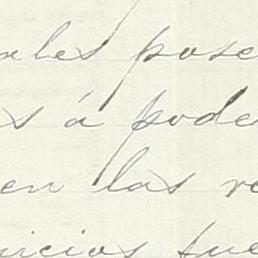 ales pose
s á pode
en las re
nicios fue